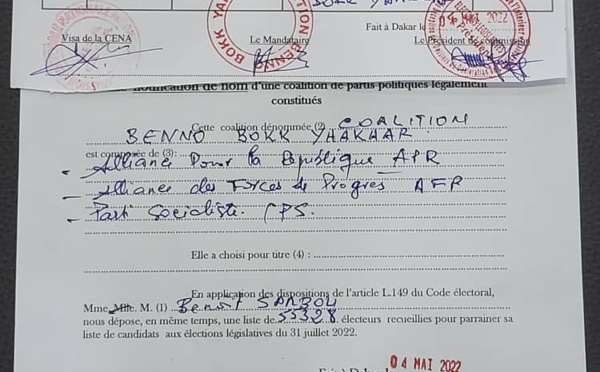 Fait à Dakar le
04 MAI 2022
Visa de la CENA
Le Mandataire
Le Président de
BOKK YA
ITION BENNO
notification de nom d'une coalition de partis politiques légalement
constitués
Cette coalition dénommée (2) COALITION
BENNO BOKK YHAKHAR
est composée de (3):
- Alliance Pour la République APR
- Alliance des Forces de Progrès AFP
- Parti Socialiste (PS.
Elle a choisi pour titre (4) :
En application des dispositions de l'article L.149 du Code électoral,
Mme. Mlle. M. (1) Benoît SAMBOU
nous dépose, en même temps, une liste de 55328 électeurs recueillies pour parrainer sa
liste de candidats aux élections législatives du 31 juillet 2022.
04 MAI 2022